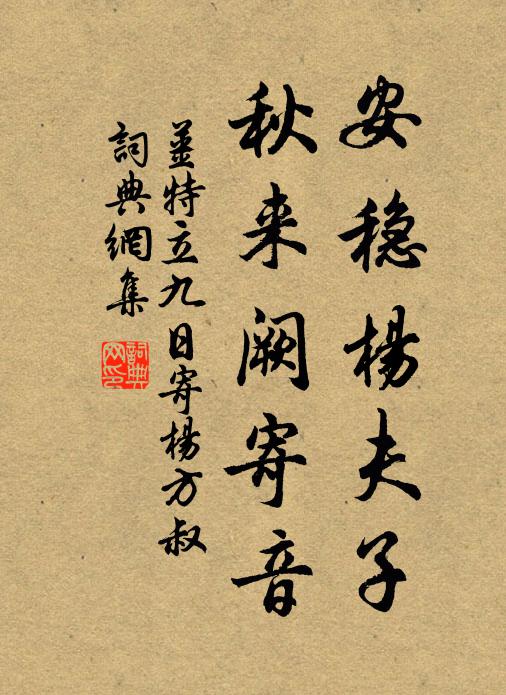 安穩楊夫子
秋来阙寄音
姜特立九日寄楊方叔
詞典網集
詞典网印